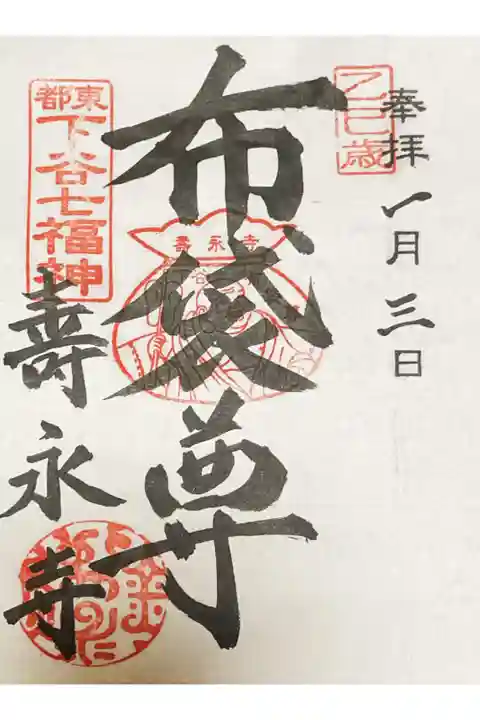 奉拝 一月三日
乙巳歳
布袋尊
壽永寺
東都
下谷七福神
壽永寺